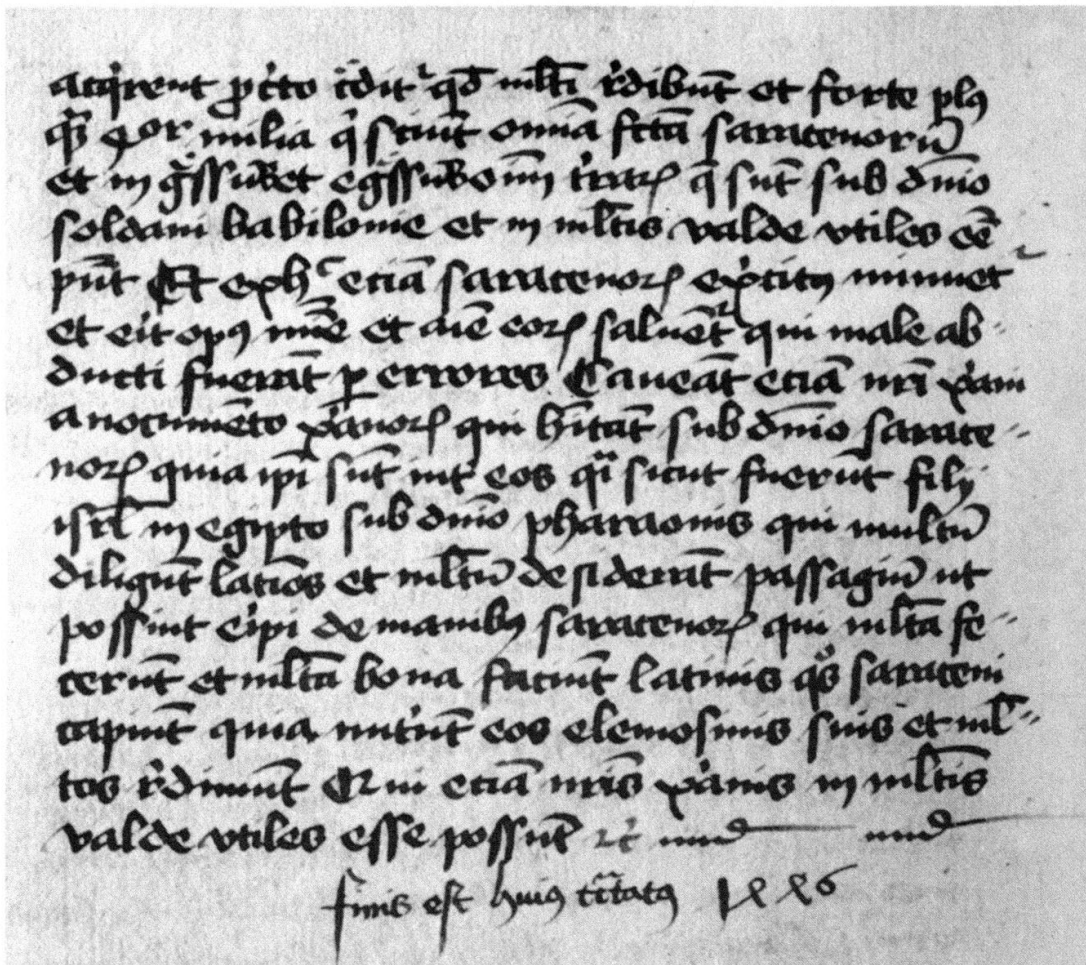 acqrent pcto cdit qd mlti rdibūt et forte plꝰ
qͣ qͦr milia qi sciūt omīa fctā saracenorū
et in gssuet egssuōīm trarꝝ q̄ sūt sub dn̄io
soldani babilonie et in ml̄tis valde vtiles eē
pn̄t Et ex hͨ eciā saracenorꝝ exͬcitꝰ minuet
et erit opꝰ mīe et aīe eorꝝ saluēt qui male ab-
ducti fuerāt ꝑ errores Caueāt eciā nr̄i xp̄iani
a nocumēto xp̄ianorꝝ qui hītāt sub dn̄io sarace-
norꝝ quia ip̄i sūt int̓ eos qͣi sicut fuerūt filij
isrl̄ in egipto sub dn̄io pharaonis qui multū
diligūt latīos et ml̄tū desiderāt passagiū ut
possint eripi de manibꝰ saracenorꝝ qui ml̄ta fe-
cerūt et ml̄ta bona faciūt latinis qͦs saraceni
capiūt quia nut̓ūt eos elemosinis suis et ml̄-
tos rͤdimūt Qui eciā nr̄is xp̄ianis in ml̄tis
valde vtiles esse possūt ⁊c̄
finis est huiꝰ tͣctatꝰ